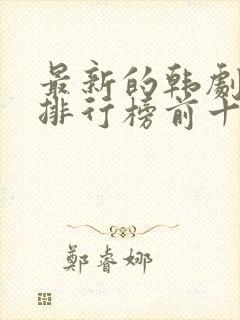 最新的韩劇
排行榜前十
鄭睿娜